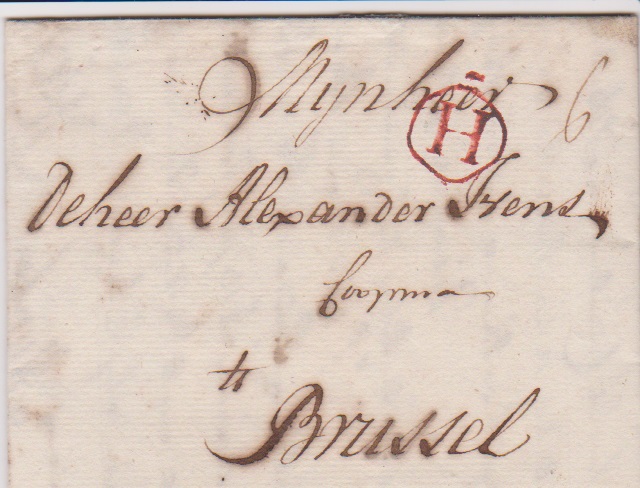 Mynheer 6
H
Deheer Alexander Isens
Coopma
tt
Brussel